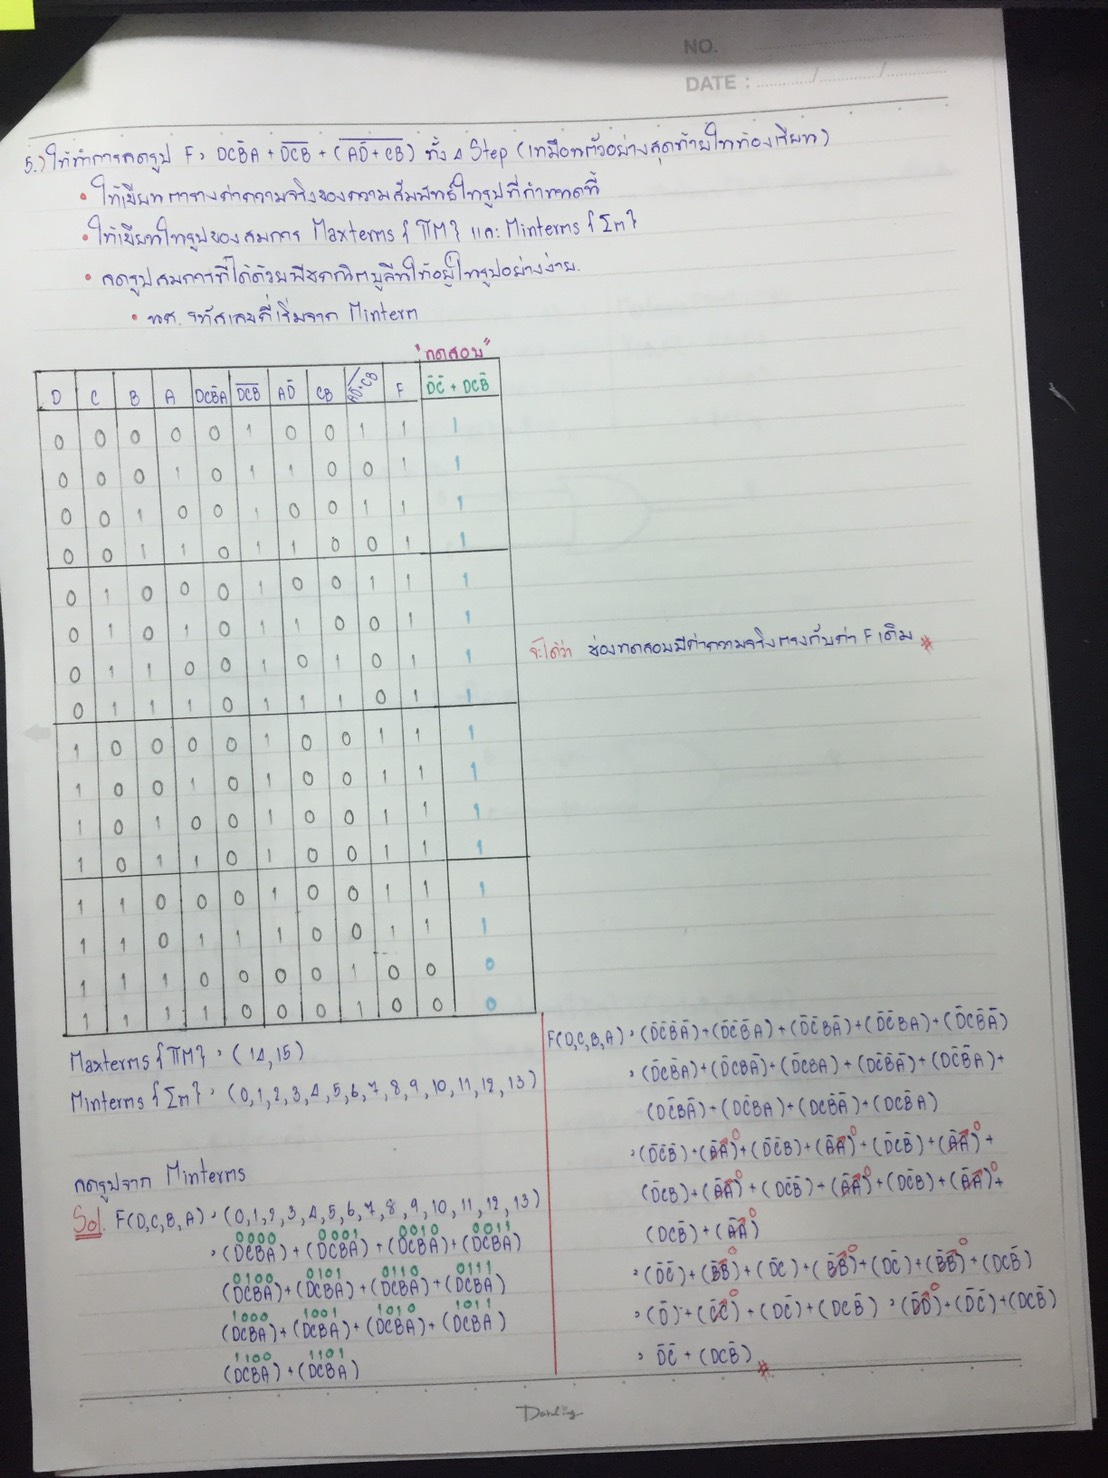 NO.
DATE : ......../......../........
5.) ให้ทำการลดรูป F = DCB̄A + D̅C̅B̅ + (A̅D̅+̅C̅B̅) ทั้ง 4 Step (เหมือนตัวอย่างสุดท้ายในห้องเรียน)
• ให้เขียนตารางค่าความจริงของความสัมพันธ์ในรูปที่กำหนดนี้
• ให้เขียนในรูปของสมการ Maxterms {ΠM} และ Minterms {Σm}
• ลดรูปสมการที่ได้ด้วยพีชคณิตบูลีนให้อยู่ในรูปอย่างง่าย.
• นศ. รหัสเลขคี่เริ่มจาก Minterm
"ทดสอบ"
D C B A DCB̄A D̅C̅B̅ AD̄ CB AD̄+CB F D̄C̄ + DCB̄
0 0 0 0 0 1 0 0 1 1 1
0 0 0 1 0 1 1 0 0 1 1
0 0 1 0 0 1 0 0 1 1 1
0 0 1 1 0 1 1 0 0 1 1
0 1 0 0 0 1 0 0 1 1 1
0 1 0 1 0 1 1 0 0 1 1
0 1 1 0 0 1 0 1 0 1 1
0 1 1 1 0 1 1 1 0 1 1
1 0 0 0 0 1 0 0 1 1 1
1 0 0 1 0 1 0 0 1 1 1
1 0 1 0 0 1 0 0 1 1 1
1 0 1 1 0 1 0 0 1 1 1
1 1 0 0 0 1 0 0 1 1 1
1 1 0 1 1 1 0 0 1 1 1
1 1 1 0 0 0 0 1 0 0 0
1 1 1 1 0 0 0 1 0 0 0
จะได้ว่า ช่องทดสอบมีค่าความจริงตรงกับค่า F เดิม
Maxterms {ΠM} = (14,15)
Minterms {Σm} = (0,1,2,3,4,5,6,7,8,9,10,11,12,13)
ลดรูปจาก Minterms
Sol. F(D,C,B,A) = (0,1,2,3,4,5,6,7,8,9,10,11,12,13)
0000 0001 0010 0011
= (DCBA) + (DCBA) + (DCBA) + (DCBA)
0100 0101 0110 0111
(DCBA) + (DCBA) + (DCBA) + (DCBA)
1000 1001 1010 1011
(DCBA) + (DCBA) + (DCBA) + (DCBA)
1100 1101
(DCBA) + (DCBA)
F(D,C,B,A) = (D̄C̄B̄Ā)+(D̄C̄B̄A)+(D̄C̄BĀ)+(D̄C̄BA)+(D̄CB̄Ā)
= (D̄CB̄A)+(D̄CBĀ)+(D̄CBA)+(DC̄B̄Ā)+(DC̄B̄A)+
(DC̄BĀ)+(DC̄BA)+(DCB̄Ā)+(DCB̄A)
= (D̄C̄B̄)+(ĀA)⁰+(D̄C̄B)+(ĀA)⁰+(D̄CB̄)+(ĀA)⁰+
(D̄CB)+(ĀA)⁰+(DC̄B̄)+(ĀA)⁰+(DC̄B)+(ĀA)⁰+
(DCB̄)+(ĀA)⁰
= (D̄C̄)+(B̄B)⁰+(D̄C)+(B̄B)⁰+(DC̄)+(B̄B)⁰+(DCB̄)
= (D̄)+(C̄C)⁰+(DC̄)+(DCB̄) = (D̄D)⁰+(D̄C̄)+(DCB̄)
= D̄C̄ + (DCB̄)